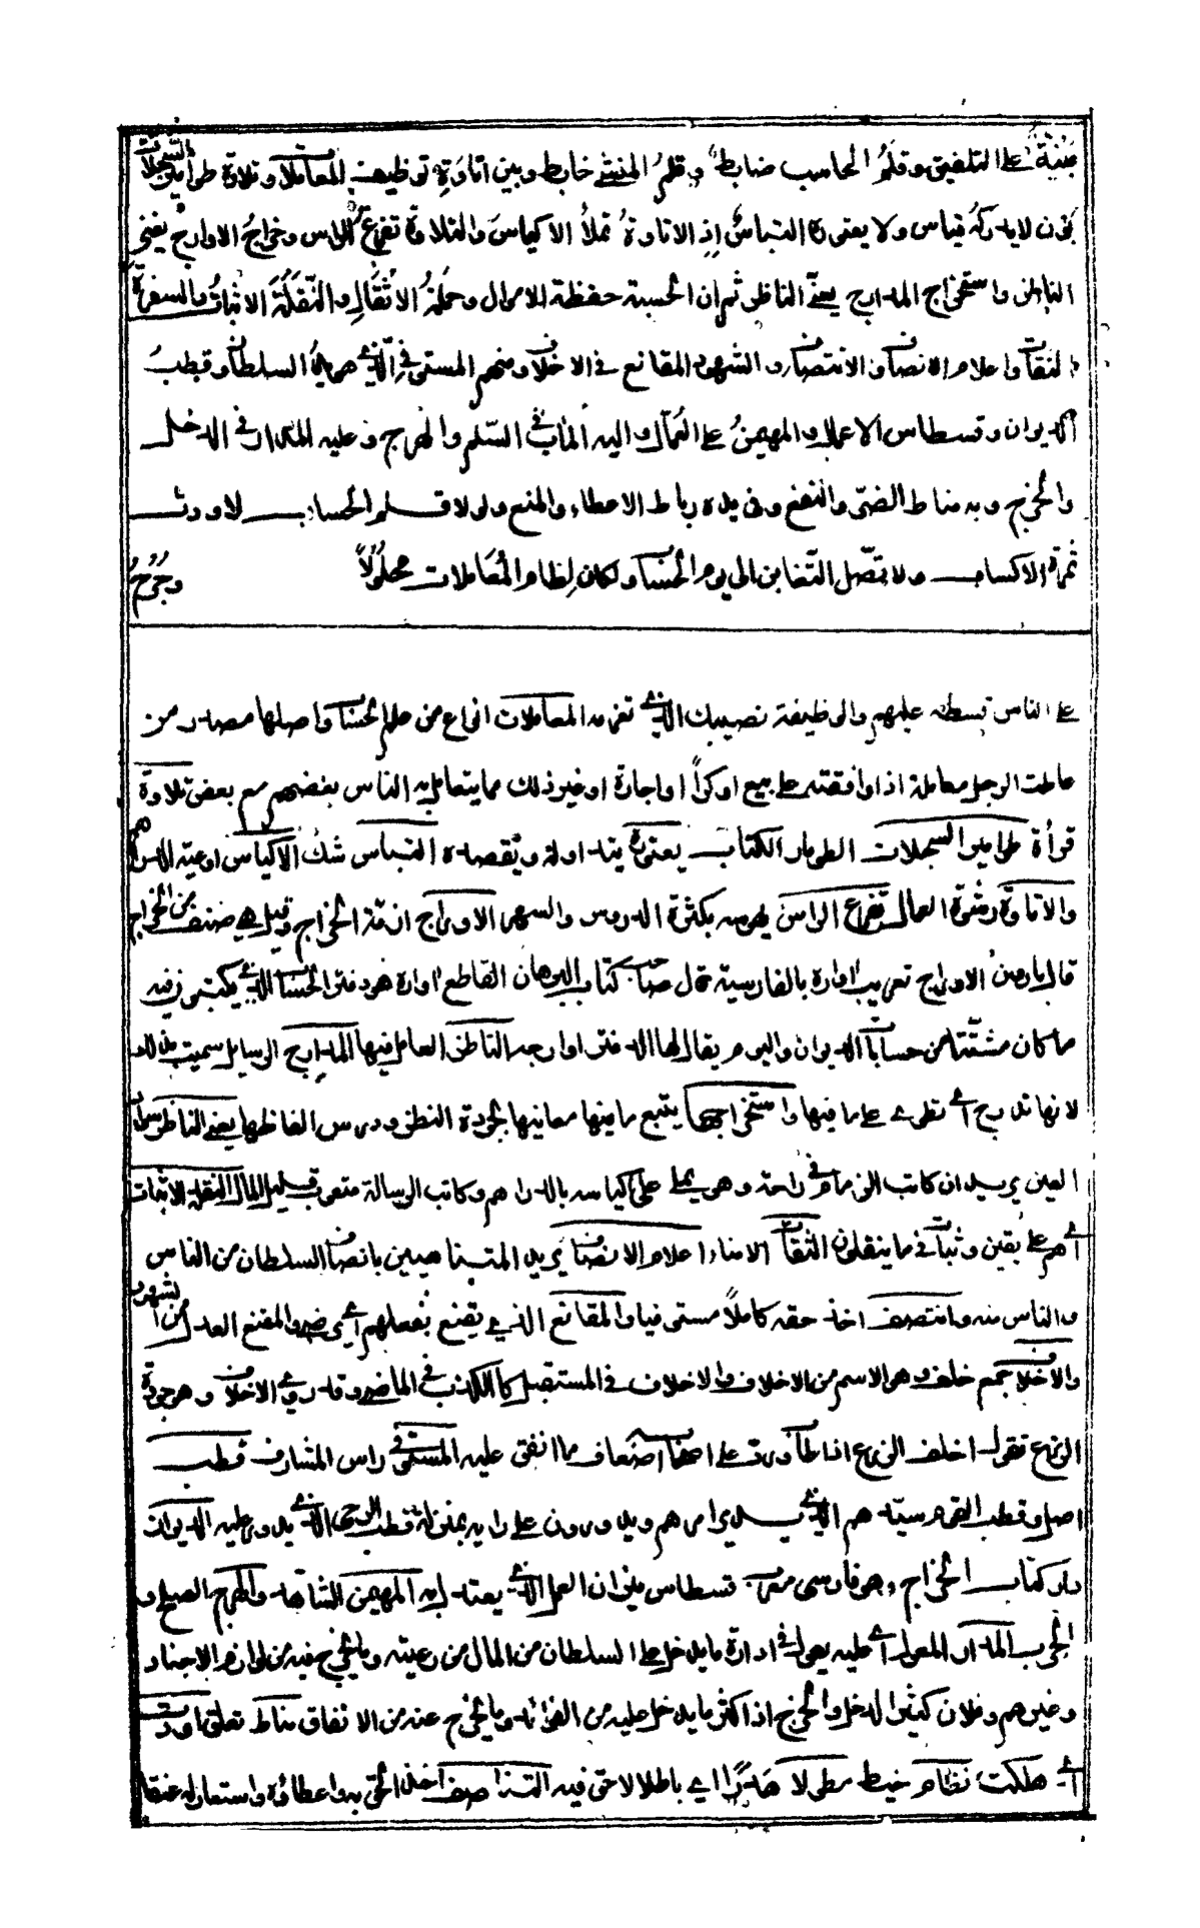 مبنية على التلفيق وقلم الحاسب ضابط وقلم المنشئ خابط وبين اتاوة توظيف المعاملات وتلاوة طوامير السجلات
بون لا يدركه قياس ولا يعتوره التباس اذ الاتاوة تملأ الاكياس والتلاوة تفرغ الراس وخراج الاوارج يغني
الناظر واستخراج المدارج يعني الناظر ثم ان الحسبة حفظة الاموال وحملة الاثقال والنقلة الاثبات والسفرة
الثقات واعلام الانصاف والانتصاف والشهود المقانع في الاختلاف ومنهم المستوفي الذي هو يد السلطان وقطب
الديوان وقسطاس الاعمال والمهيمن على العمال واليه المآب في السلم والهرج وعليه المدار في الدخل
والخرج وبه مناط الضر والنفع وفي يده رباط الاعطاء والمنع ولولا قلم الحساب لاودت
ثمرة الاكتساب ولاتصل التغابن الى يوم الحساب ولكان نظام المعاملات محلولا وجرح
على الناس قسطه عليهم والوظيفة نصيبك الذي تغرمه المعاملات انواع من علم الحساب واصلها مصادر من
عاملت الرجل معاملة اذا وافقته على بيع او كرا او اجارة او غير ذلك مما يتعامل به الناس بعضهم مع بعض تلاوة
قرأة طوامير السجلات الطومار الكتاب يعتوره يتداوله ويقصده التباس شك الاكياس اوعية الدراهم
والاتاوة رشوة العمال تفرغ الراس يهوسه بكثرة الدروس والسهر الاوراج ازمة الخراج وقيل هي صنف من الخراج
قال باردمن الاوراج تعريب اواره بالفارسية قال صاحب كتاب البرهان القاطع اواره هو دفتر الحساب الذي يكتبون فيه
ما كان مشتتا من حسابات الديوان واليوم يقال لها الدفتر اوارجه الناظر العامل فيها المدارج الرسايل سميت بذلك
لانها تدرج اي تطوى على ما فيها واستخراجها يتبع ما فيها معانيها بجودة النطق ودرس الفاظها يعني الناظر سواد
العين يريد ان كاتب الزمام في راحة وهو يملي على كياسه بالدراهم وكاتب الرسالة متعوب قليل المال النقلة الاثبات
اي هم على يقين وثبات في ما ينقلون الثقات الامناء اعلام الانصاف يريد المتناصبين بانصاف السلطان من الناس
والناس منه وانتصف اخذ حقه كاملا مستوفيا والمقانع الذي يقنع بفعلهم اي يرضى والمقنع العدل من الشهود
والاخلاف جمع خلف وهو الاسم من الاخلاف والاخلاف في المستقبل كالكذب في الماضي وقد روي الاخلاف وهو جودة
الزرع تقول اخلف الزرع اذا طاب ورق على اصحابه اضعاف ما انفق عليه المستوفي راس المشارف قطب
اصل وقطب القوم سيدهم الذي يسد امرهم ويدورون على رايه بمنزلة قطب الرحى الذي يدور عليه الديوان
دار كتاب الخراج وهو فارسي معرب قسطاس ميزان العمل الذي يعتدل به المهيمن الشاهد والهرج الصلح و
الحرب المدار المعول اي عليه يعول في ادارة ما يدخل على السلطان من المال من رعيته وما يخرج منه من لوازم الاجناد
وغيرهم وفلان كثير الدخل والخرج اذا كثر ما يدخل عليه من الفوائد وما يخرج عنه من الانفاق مناط تعلق اودت
اي هلكت نظام خيط مطولا هدرا اي باطلا لا حق فيه التناصف اخذ الحق به واعطاؤه واستعار له عنقا